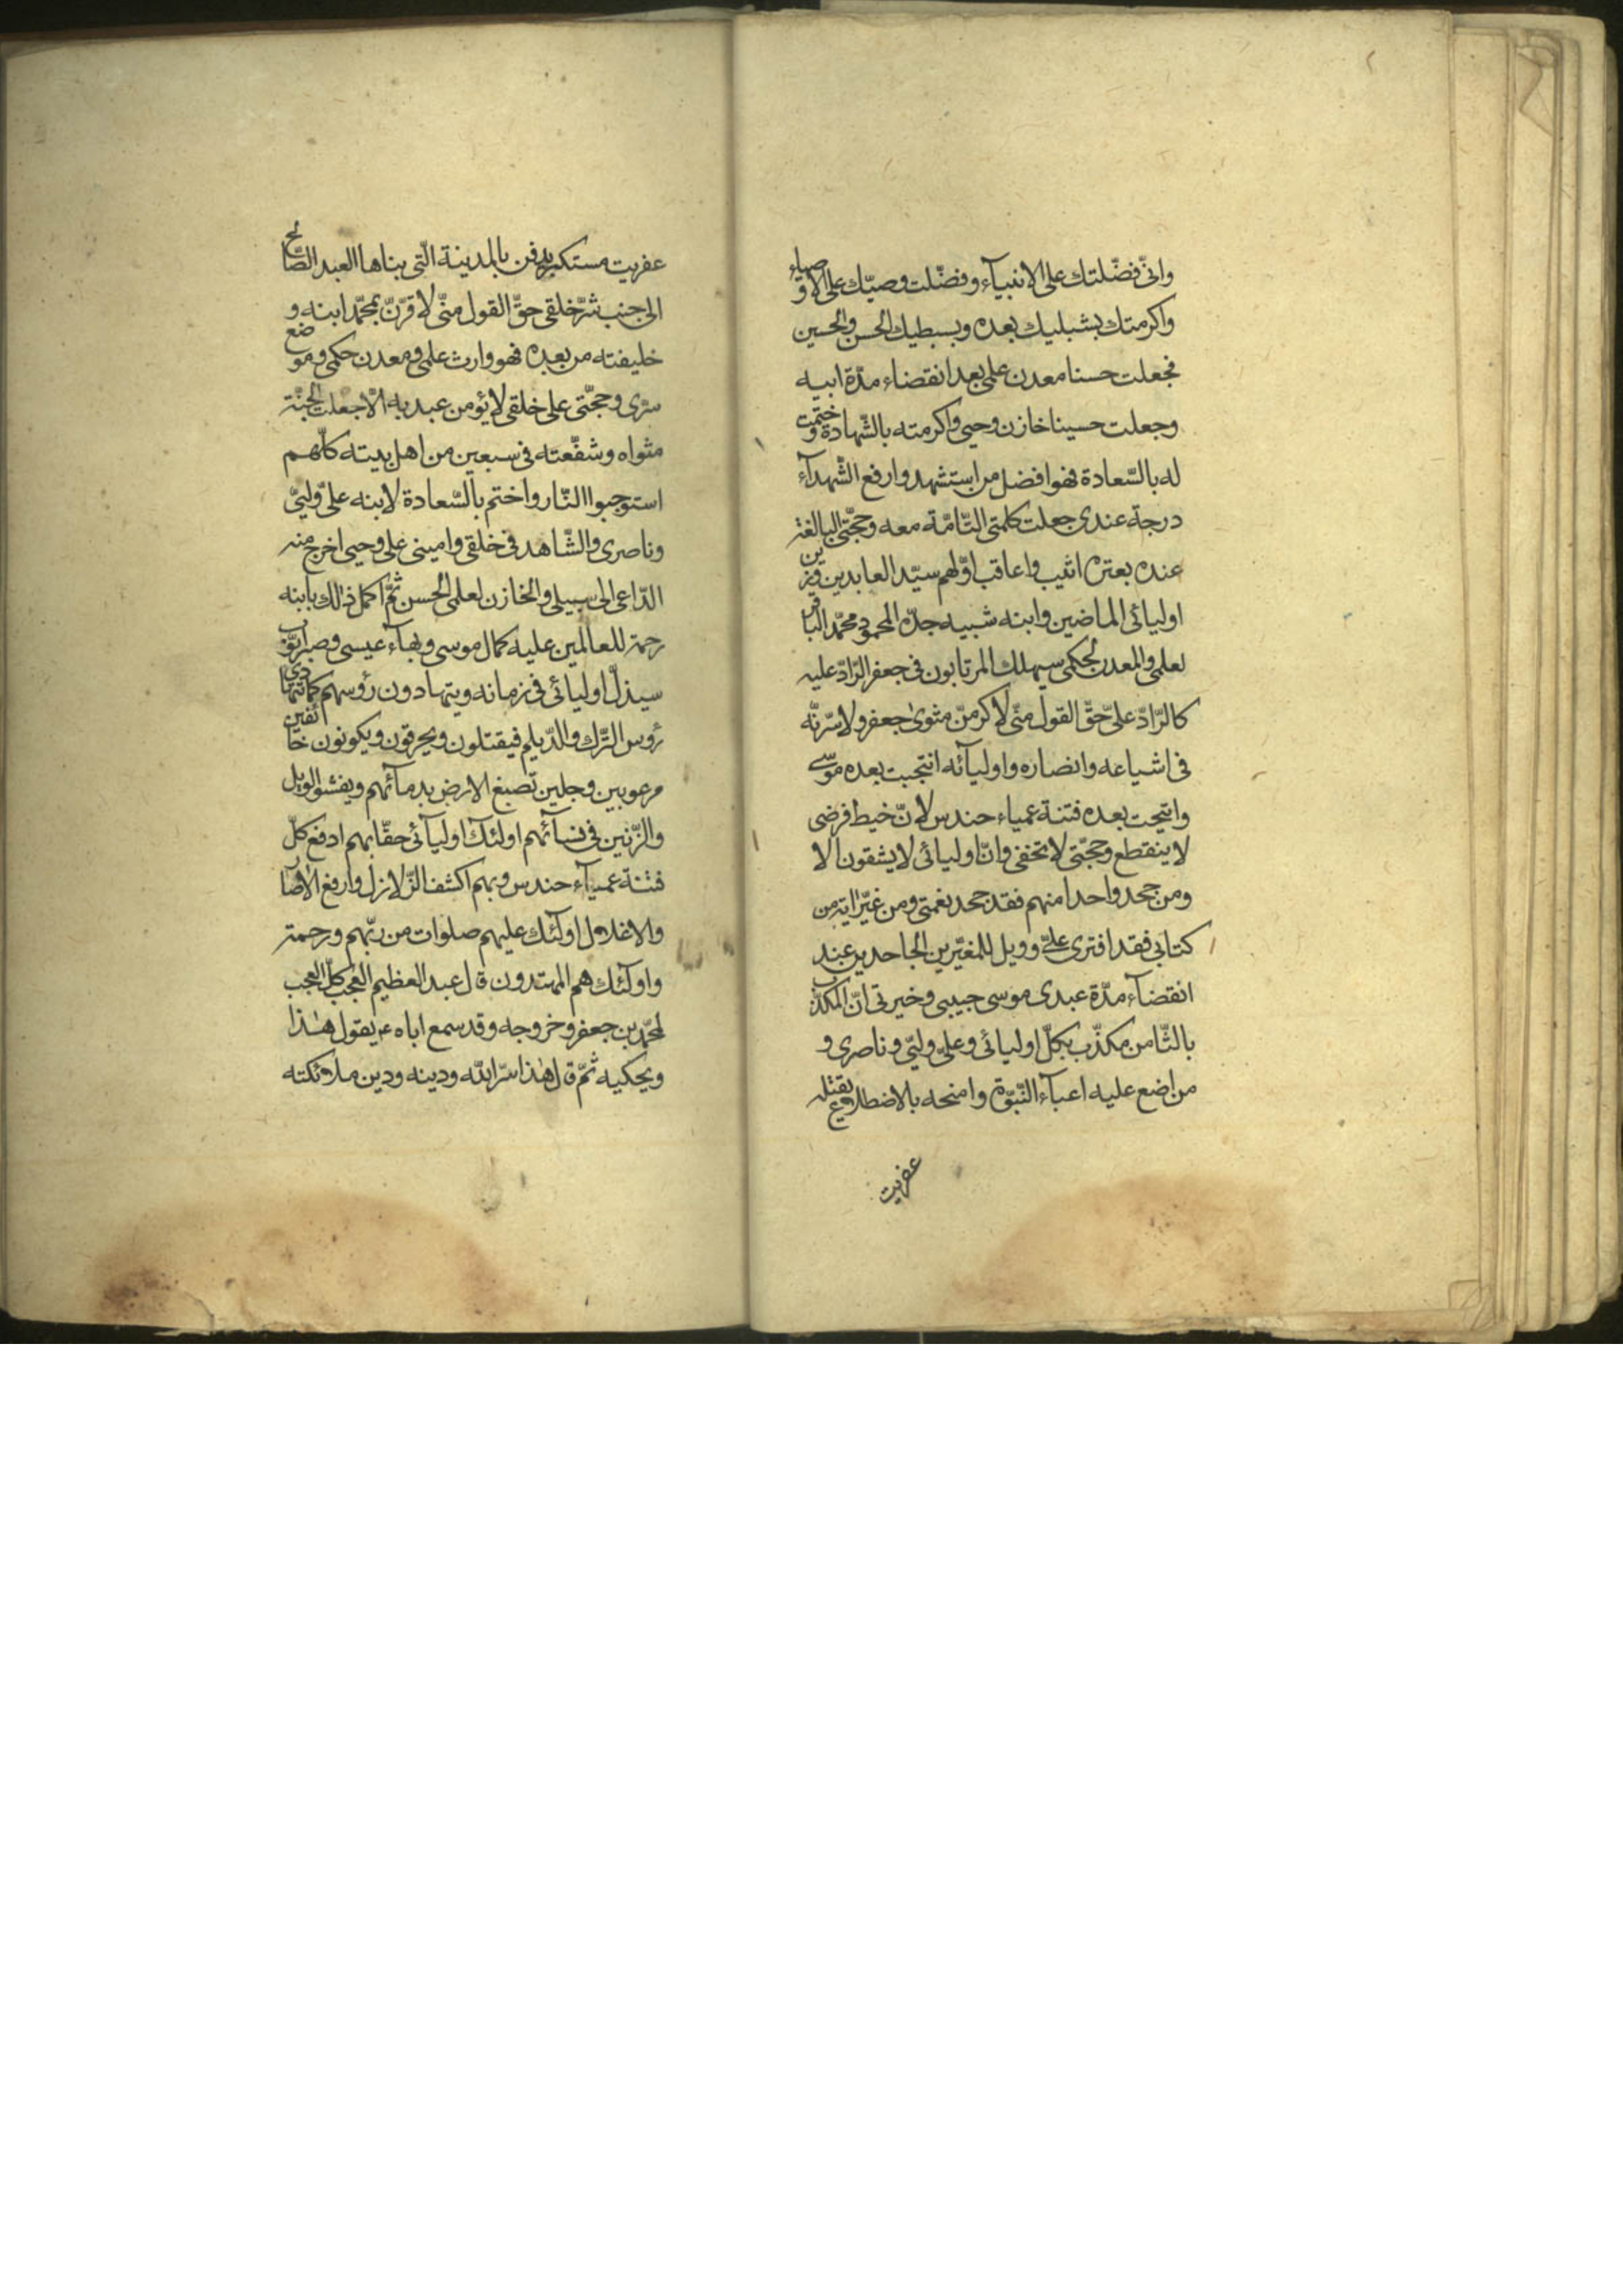 وانّی فضّلتك علی الانبیآء وفضّلت وصیّك علی الاوصیاء
واکرمتك بشبلیك بعده وبسبطیك الحسن والحسین
فجعلت حسنا معدن علمی بعد انقضاء مدّة ابیه
وجعلت حسینا خازن وحیی واکرمته بالشّهادة وختمت
له بالسّعادة فهو افضل من استشهد وارفع الشّهدآء
درجة عندی جعلت کلمتی التّامّة معه وحجّتی البالغة
عنده بعترته اثیب واعاقب اوّلهم سیّد العابدین وزین
اولیائی الماضین وابنه شبیه جدّه المحمود محمّد الباقر
لعلمی والمعدن لحکمی سیهلك المرتابون فی جعفر الرّادّ علیه
کالرّادّ علیّ حقّ القول منّی لاکرمنّ مثوی جعفر ولاسّرنّه
فی اشیاعه وانصاره واولیآئه انتجبت بعده موسی
وانتجبت بعده فتنة عمیاء حندس لانّ خیط فرضی
لا ینقطع وحجّتی لا تخفی وانّ اولیائی لا یشقون الا
ومن جحد واحدا منهم فقد جحد نعمتی ومن غیّر ایة من
کتابی فقد افتری علیّ وویل للمغیّرین الجاحدین عند
انقضآء مدّة عبدی موسی حبیبی وخیرتی انّ المکذّب
بالثّامن مکذّب بکلّ اولیائی وعلیّ ولیّی وناصری و
من اضع علیه اعبآء النّبوّة وامنحه بالاضطلاع یقتله
عفریت
عفریت مستکبر یدفن بالمدینة الّتی بناها العبد الصّالح
الی جنب شرّ خلقی حقّ القول منّی لاقرّنّ بمحمّد ابنه و
خلیفته من بعده فهو وارث علمی ومعدن حکمی وموضع
سرّی وحجّتی علی خلقی لا یؤمن عبد به الّا جعلت الجنّة
مثواه وشفّعته فی سبعین من اهل بیته کلّهم
استوجبوا النّار واختم بالسّعادة لابنه علیّ ولیّی
وناصری والشّاهد فی خلقی وامینی علی وحیی اخرج منه
الدّاعی الی سبیلی والخازن لعلمی الحسن ثمّ اکمل ذلك بابنه
رحمة للعالمین علیه کمال موسی وبهآء عیسی وصبر ایّوب
سیذلّ اولیائی فی زمانه ویتهادون رؤسهم کما تتهادی
رؤس التّرك والدّیلم فیقتلون ویحرقون ویکونون خائفین
مرعوبین وجلین تصبغ الارض بدمآئهم ویفشو الویل
والرّنین فی نسآئهم اولئك اولیآئی حقّا بهم ادفع کلّ
فتنة عمیآء حندس وبهم اکشف الزّلازل وارفع الاصار
والاغلال اولٓئك علیهم صلوات من ربّهم ورحمة
واولٓئك هم المهتدون قال عبد العظیم العجب کلّ العجب
لمحمّد بن جعفر وخروجه وقد سمع اباه ع یقول هذا
ویحکیه ثمّ قال هذا سرّ اللّه ودینه ودین ملائکته